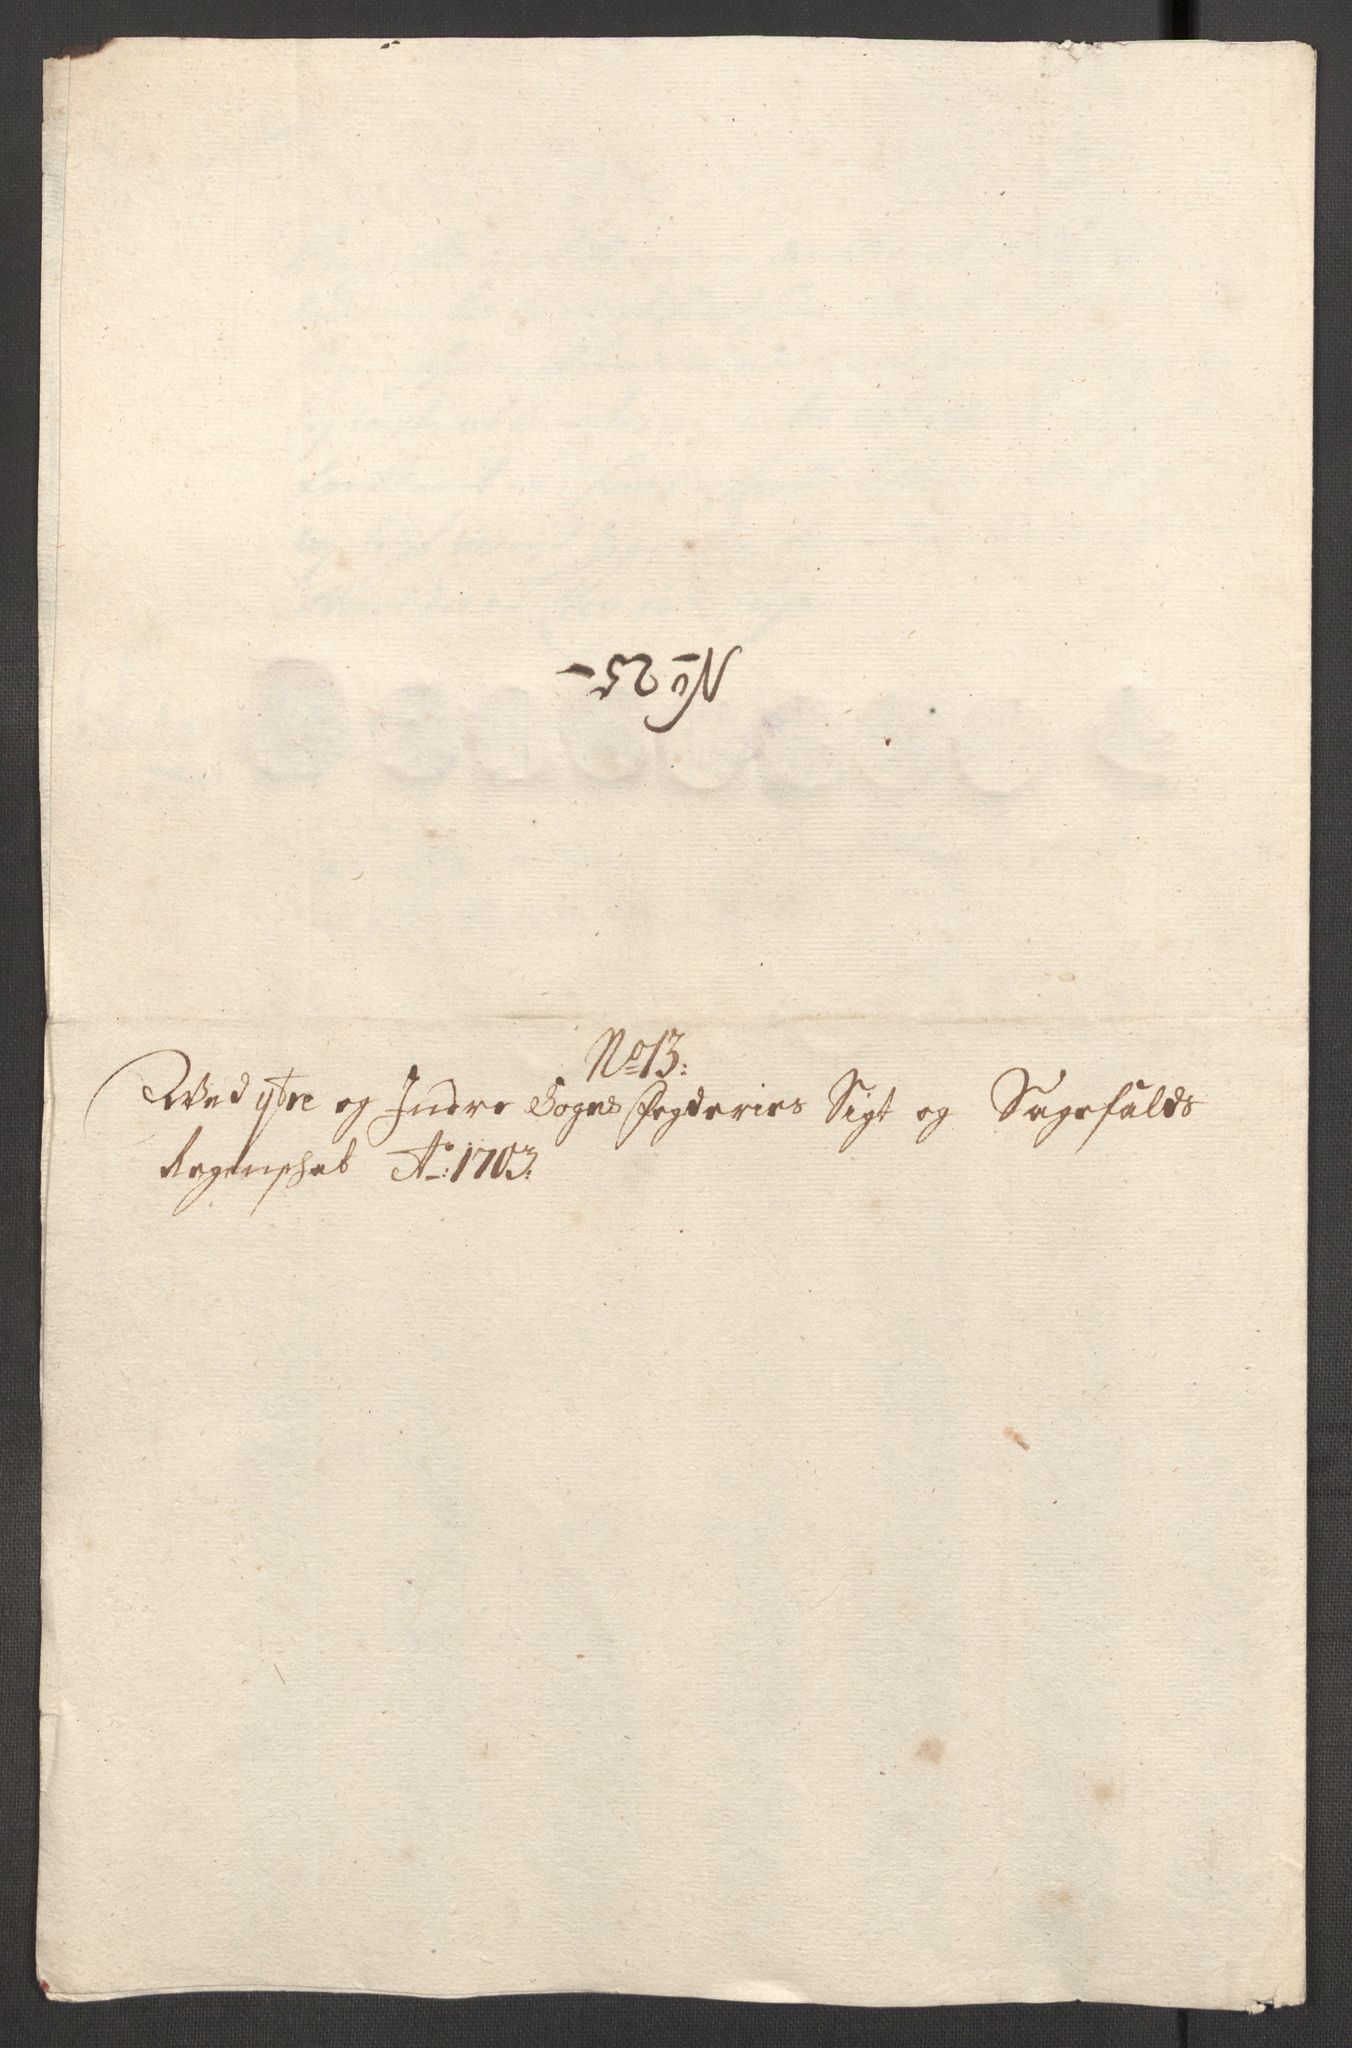 No 25-
No 13:
Wed ytre og Indre Sogns fogderies Sigt og Sagefalds
Regenschab Ao: 1703.